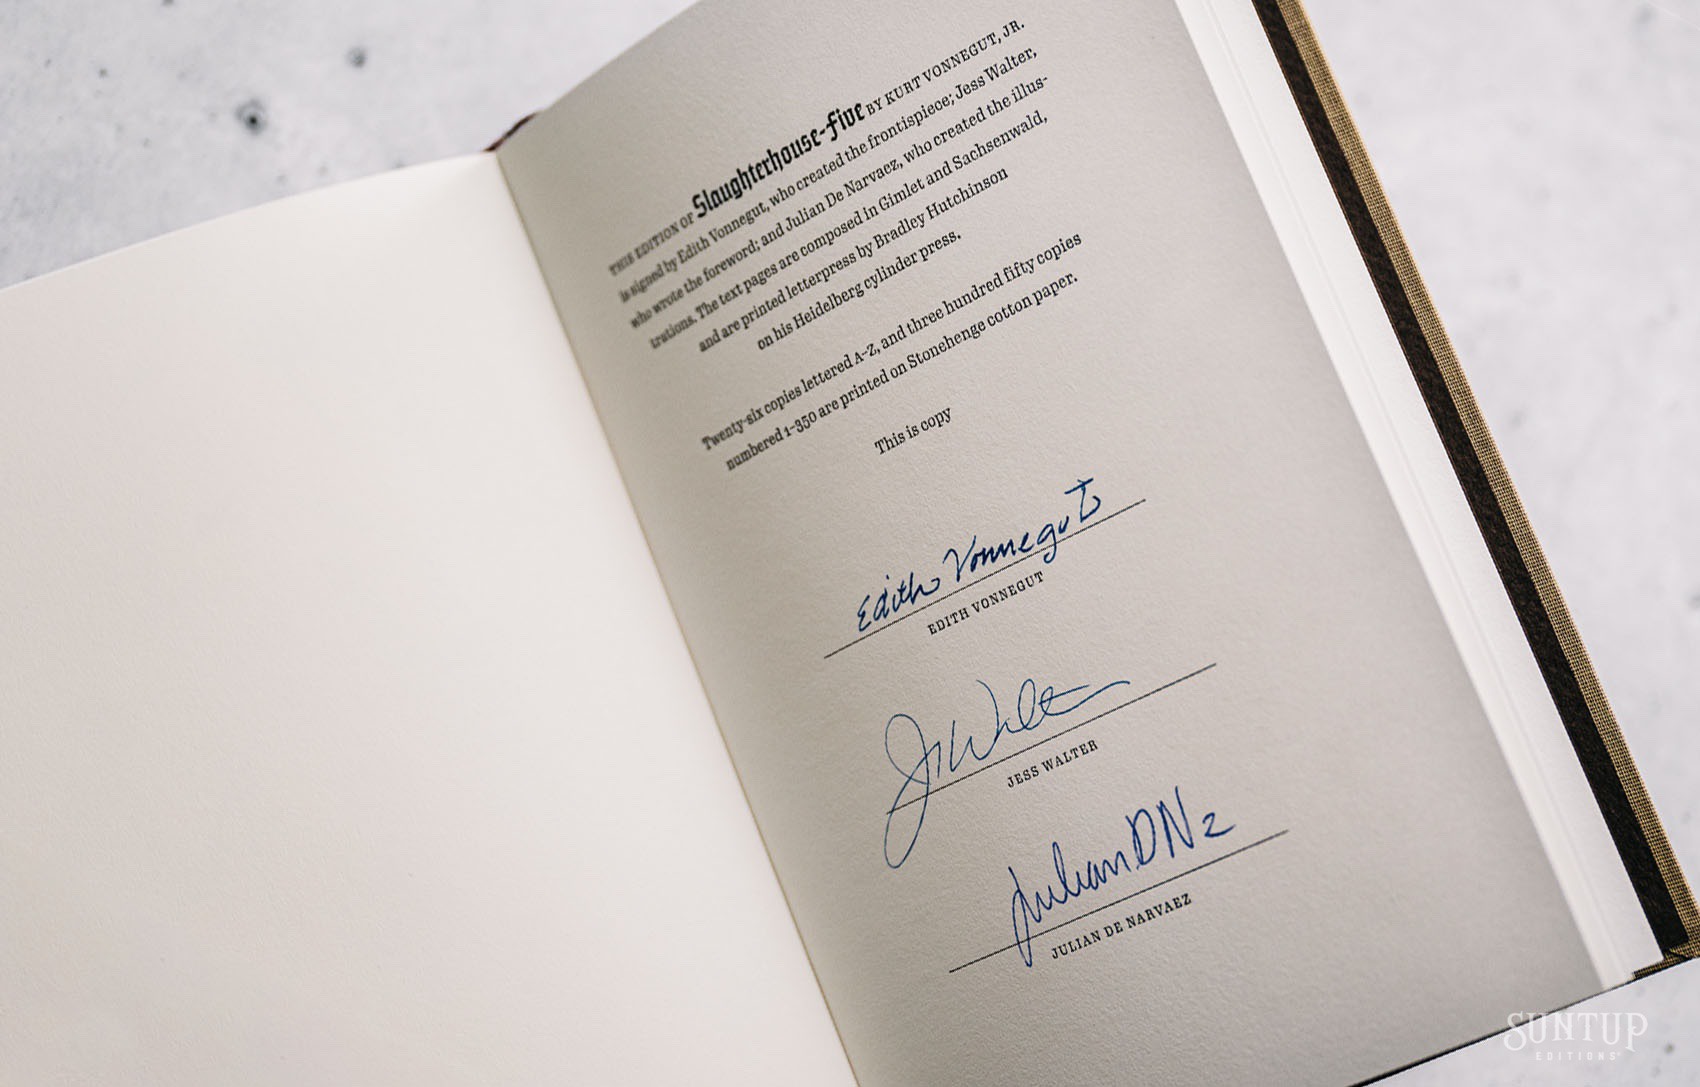 THIS EDITION OF Slaughterhouse-Five BY KURT VONNEGUT, JR.
is signed by Edith Vonnegut, who created the frontispiece; Jess Walter,
who wrote the foreword; and Julian De Narvaez, who created the illus-
trations. The text pages are composed in Gimlet and Sachsenwald,
and are printed letterpress by Bradley Hutchinson
on his Heidelberg cylinder press.
Twenty-six copies lettered A–Z, and three hundred fifty copies
numbered 1–350 are printed on Stonehenge cotton paper.
This is copy
Edith Vonnegut
EDITH VONNEGUT
J Walter
JESS WALTER
Julian DNz
JULIAN DE NARVAEZ
SUNTUP
EDITIONS